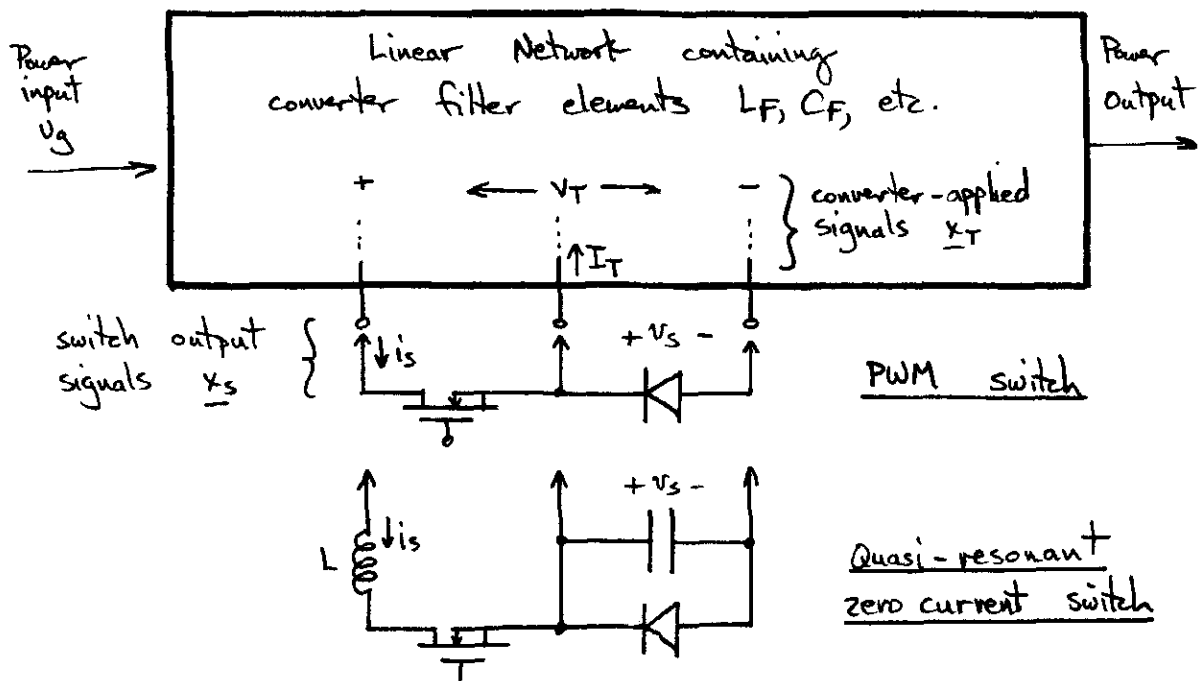 Linear Network containing
converter filter elements L_F, C_F, etc.
Power
input
v_g
Power
Output
+ ← v_T → -
converter-applied
signals x_T
↑ I_T
switch output
signals x_s
↓ i_s
+ v_s -
PWM switch
+ v_s -
L
↓ i_s
Quasi-resonant
zero current switch